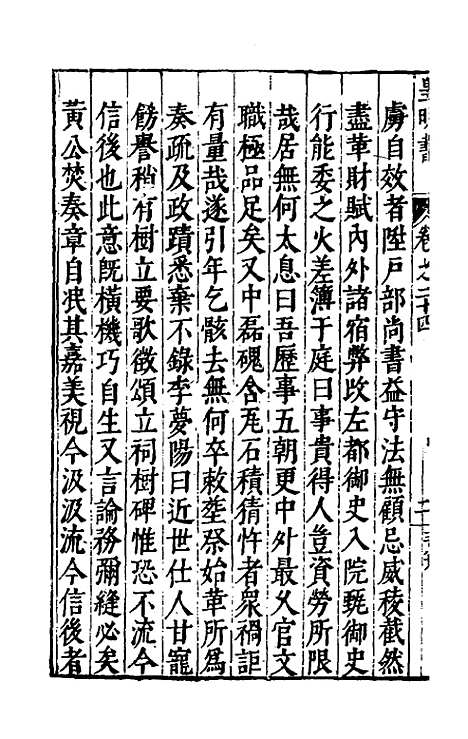 虜自效者陞戶部尚書益守法無顧忌威稜截然
盡革財賦內外諸宿弊改左都御史入院甄御史
行能委之火差簿于庭曰事貴得人豈資勞所限
哉居無何太息曰吾歷事五朝更中外最久官文
職極品足矣又中磊磈含瓦石積猜忤者衆禍詎
有量哉遂引年乞骸去無何卒敕塟祭始革所爲
奏疏及政蹟悉棄不錄李夢陽曰近世仕人甘寵
餙譽稍有樹立要歌徵頌立祠樹碑惟恐不流今
信後也此意旣橫機巧自生又言論務彌縫必矣
黃公焚奏章自泯其嘉美視今汲汲流今信後者
皇明書
卷之二十四